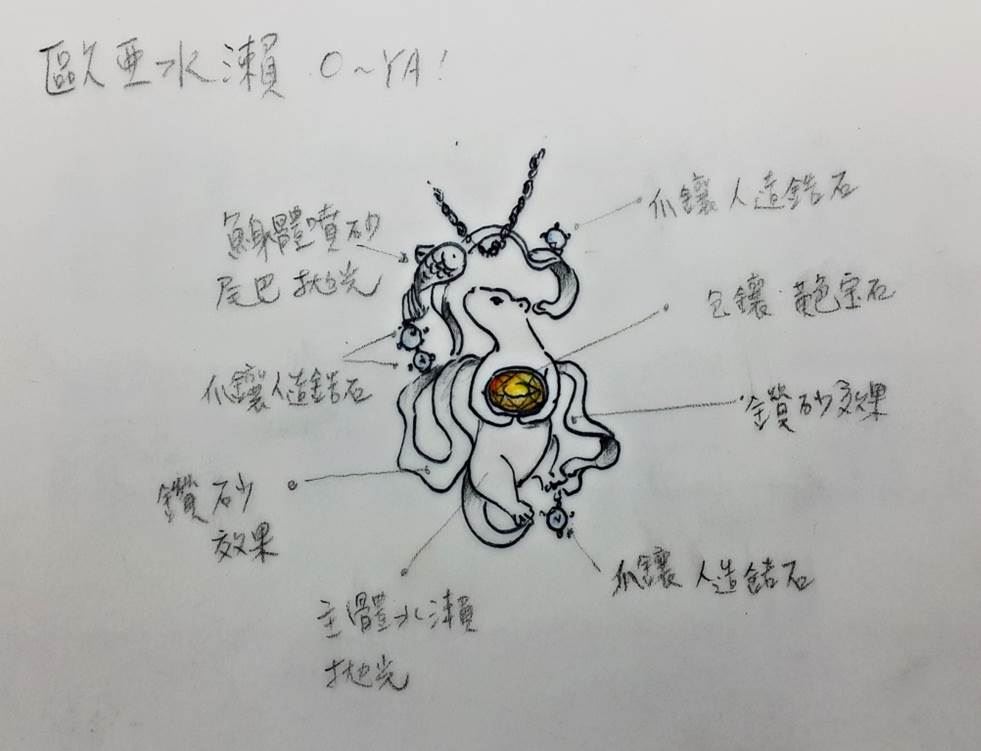 歐亞水瀨 O~YA!
爪鑲人造鋯石
魚身體噴砂
尾巴拋光
包鑲 黃色宝石
爪鑲人造鋯石
鑽砂效果
鑽砂
效果
爪鑲 人造鋯石
主體水瀨
拋光